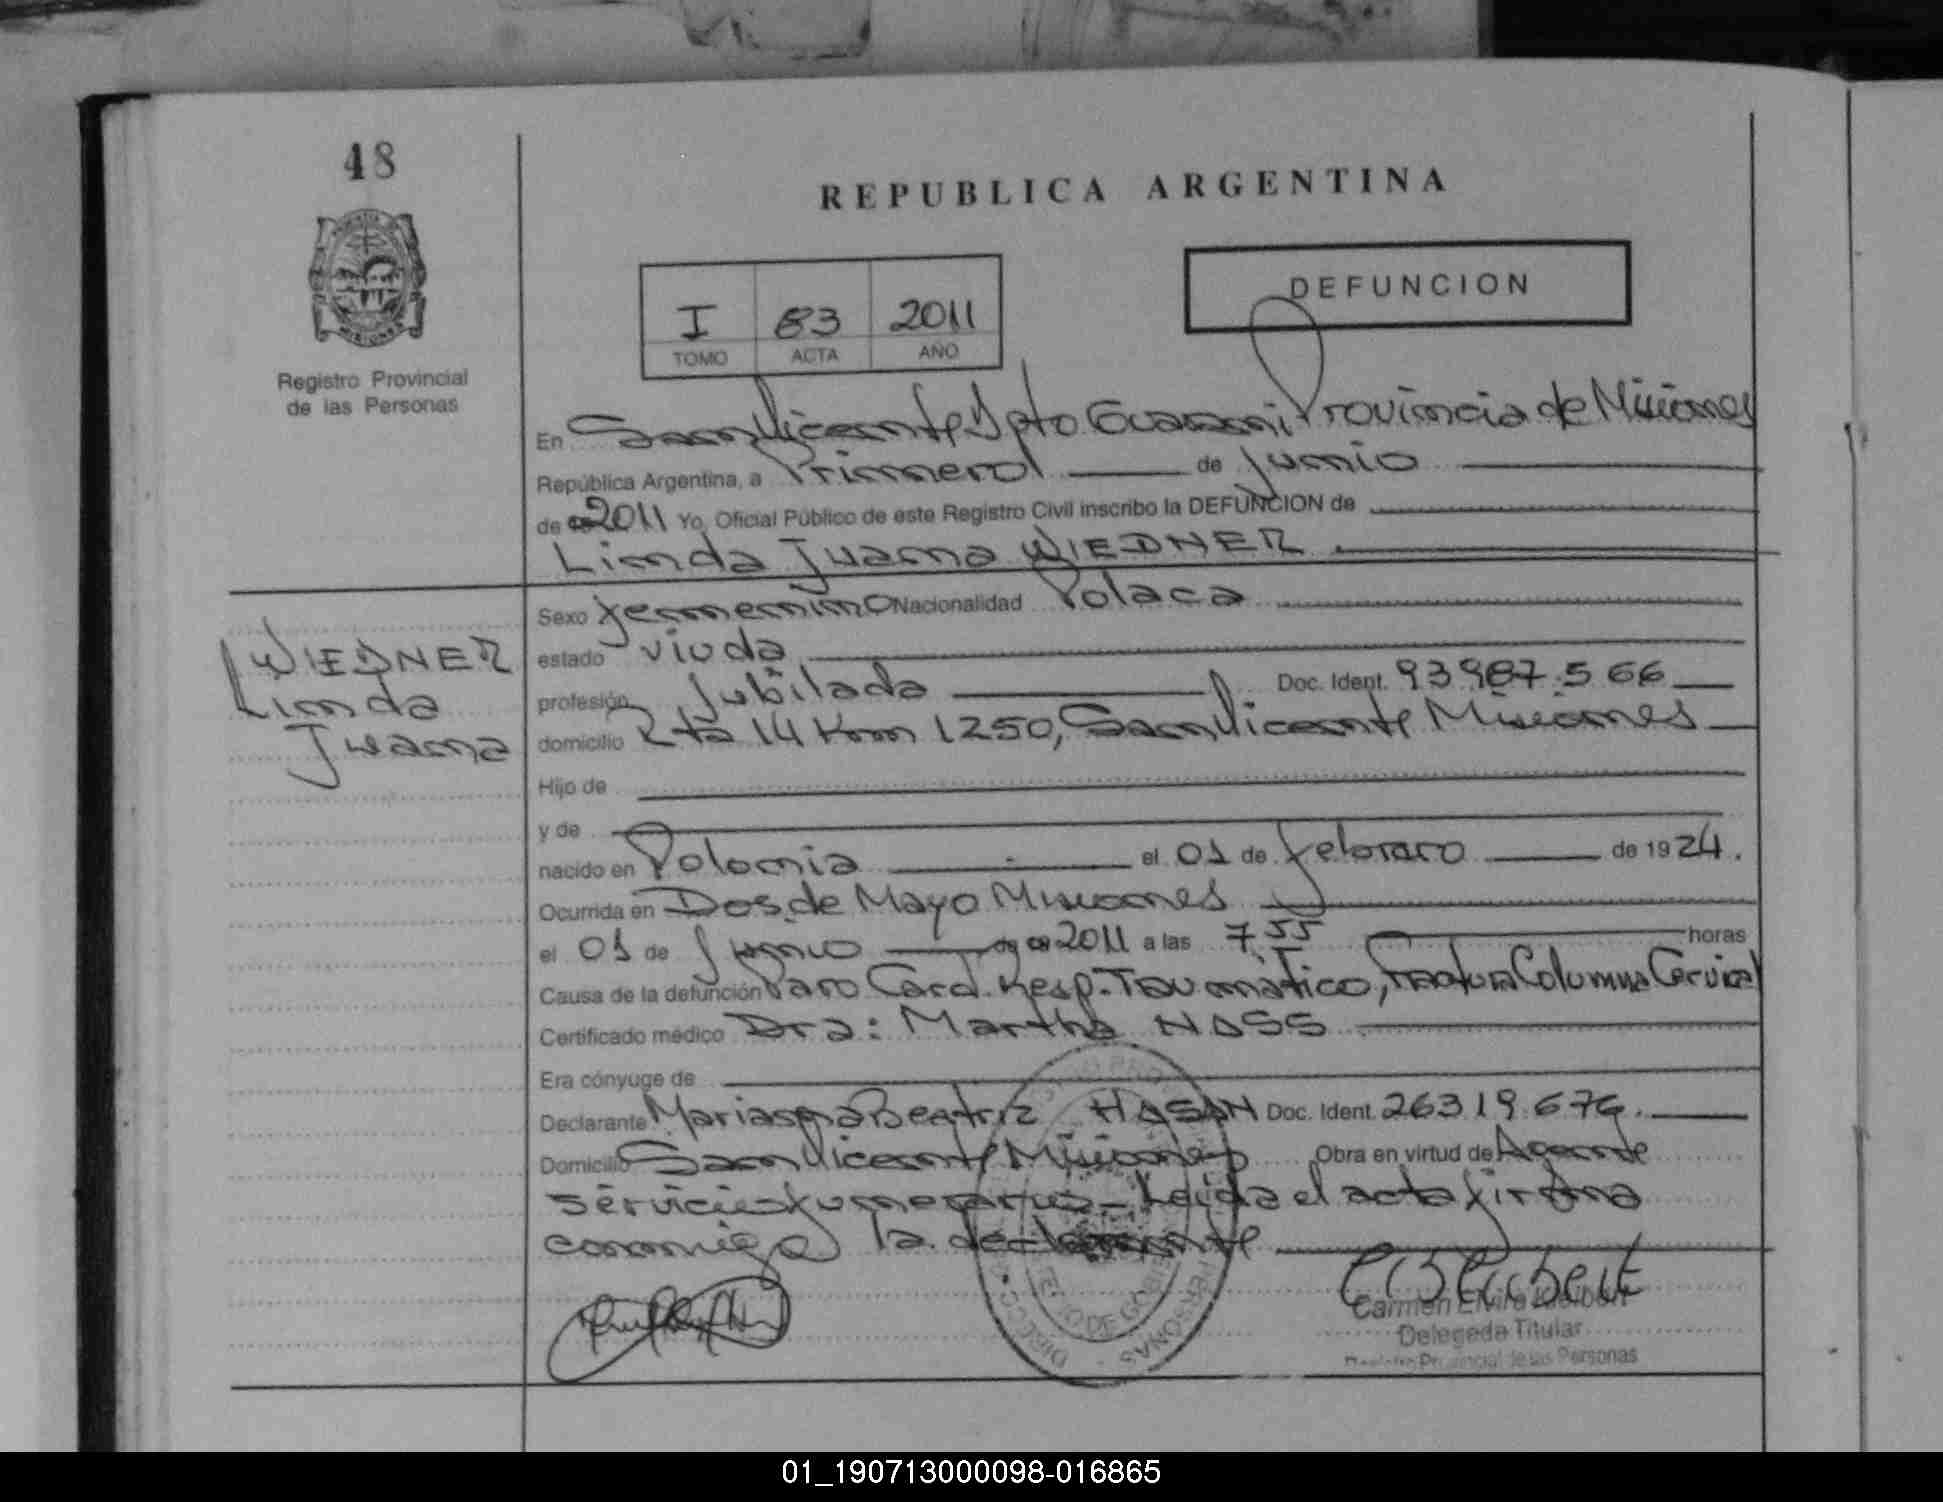 48
REPUBLICA ARGENTINA
DEFUNCION
I 83 2011
TOMO ACTA AÑO
Registro Provincial
de las Personas
En San Vicente Dpto Guarani Provincia de Misiones
República Argentina, a Primero de Junio
de 2011 Yo, Oficial Público de este Registro Civil inscribo la DEFUNCION de
Linda Juana WIEDNER
Sexo femenino Nacionalidad Polaca
WIEDNER
Linda
Juana
estado viuda
profesión Jubilada Doc. Ident. 93987.566
domicilio Rta 14 Km 1250, San Vicente Misiones
Hijo de
y de
nacido en Polonia el 01 de febrero de 1924.
Ocurrida en Dos de Mayo Misiones
el 01 de Junio 2011 a las 7,55 horas
Causa de la defunción Paro Card. Resp. Traumático, Fractura Columna Cervical
Certificado médico Dra: Martha NASS
Era cónyuge de
Declarante Beatriz HASAN Doc. Ident. 26319.676.
Domicilio San Vicente Misiones Obra en virtud de Agente
servicios funerarios - Leida el acta firma
conmigo la declarante
Carmen Elvira
Delegada Titular
Registro Provincial de las Personas
01_190713000098-016865